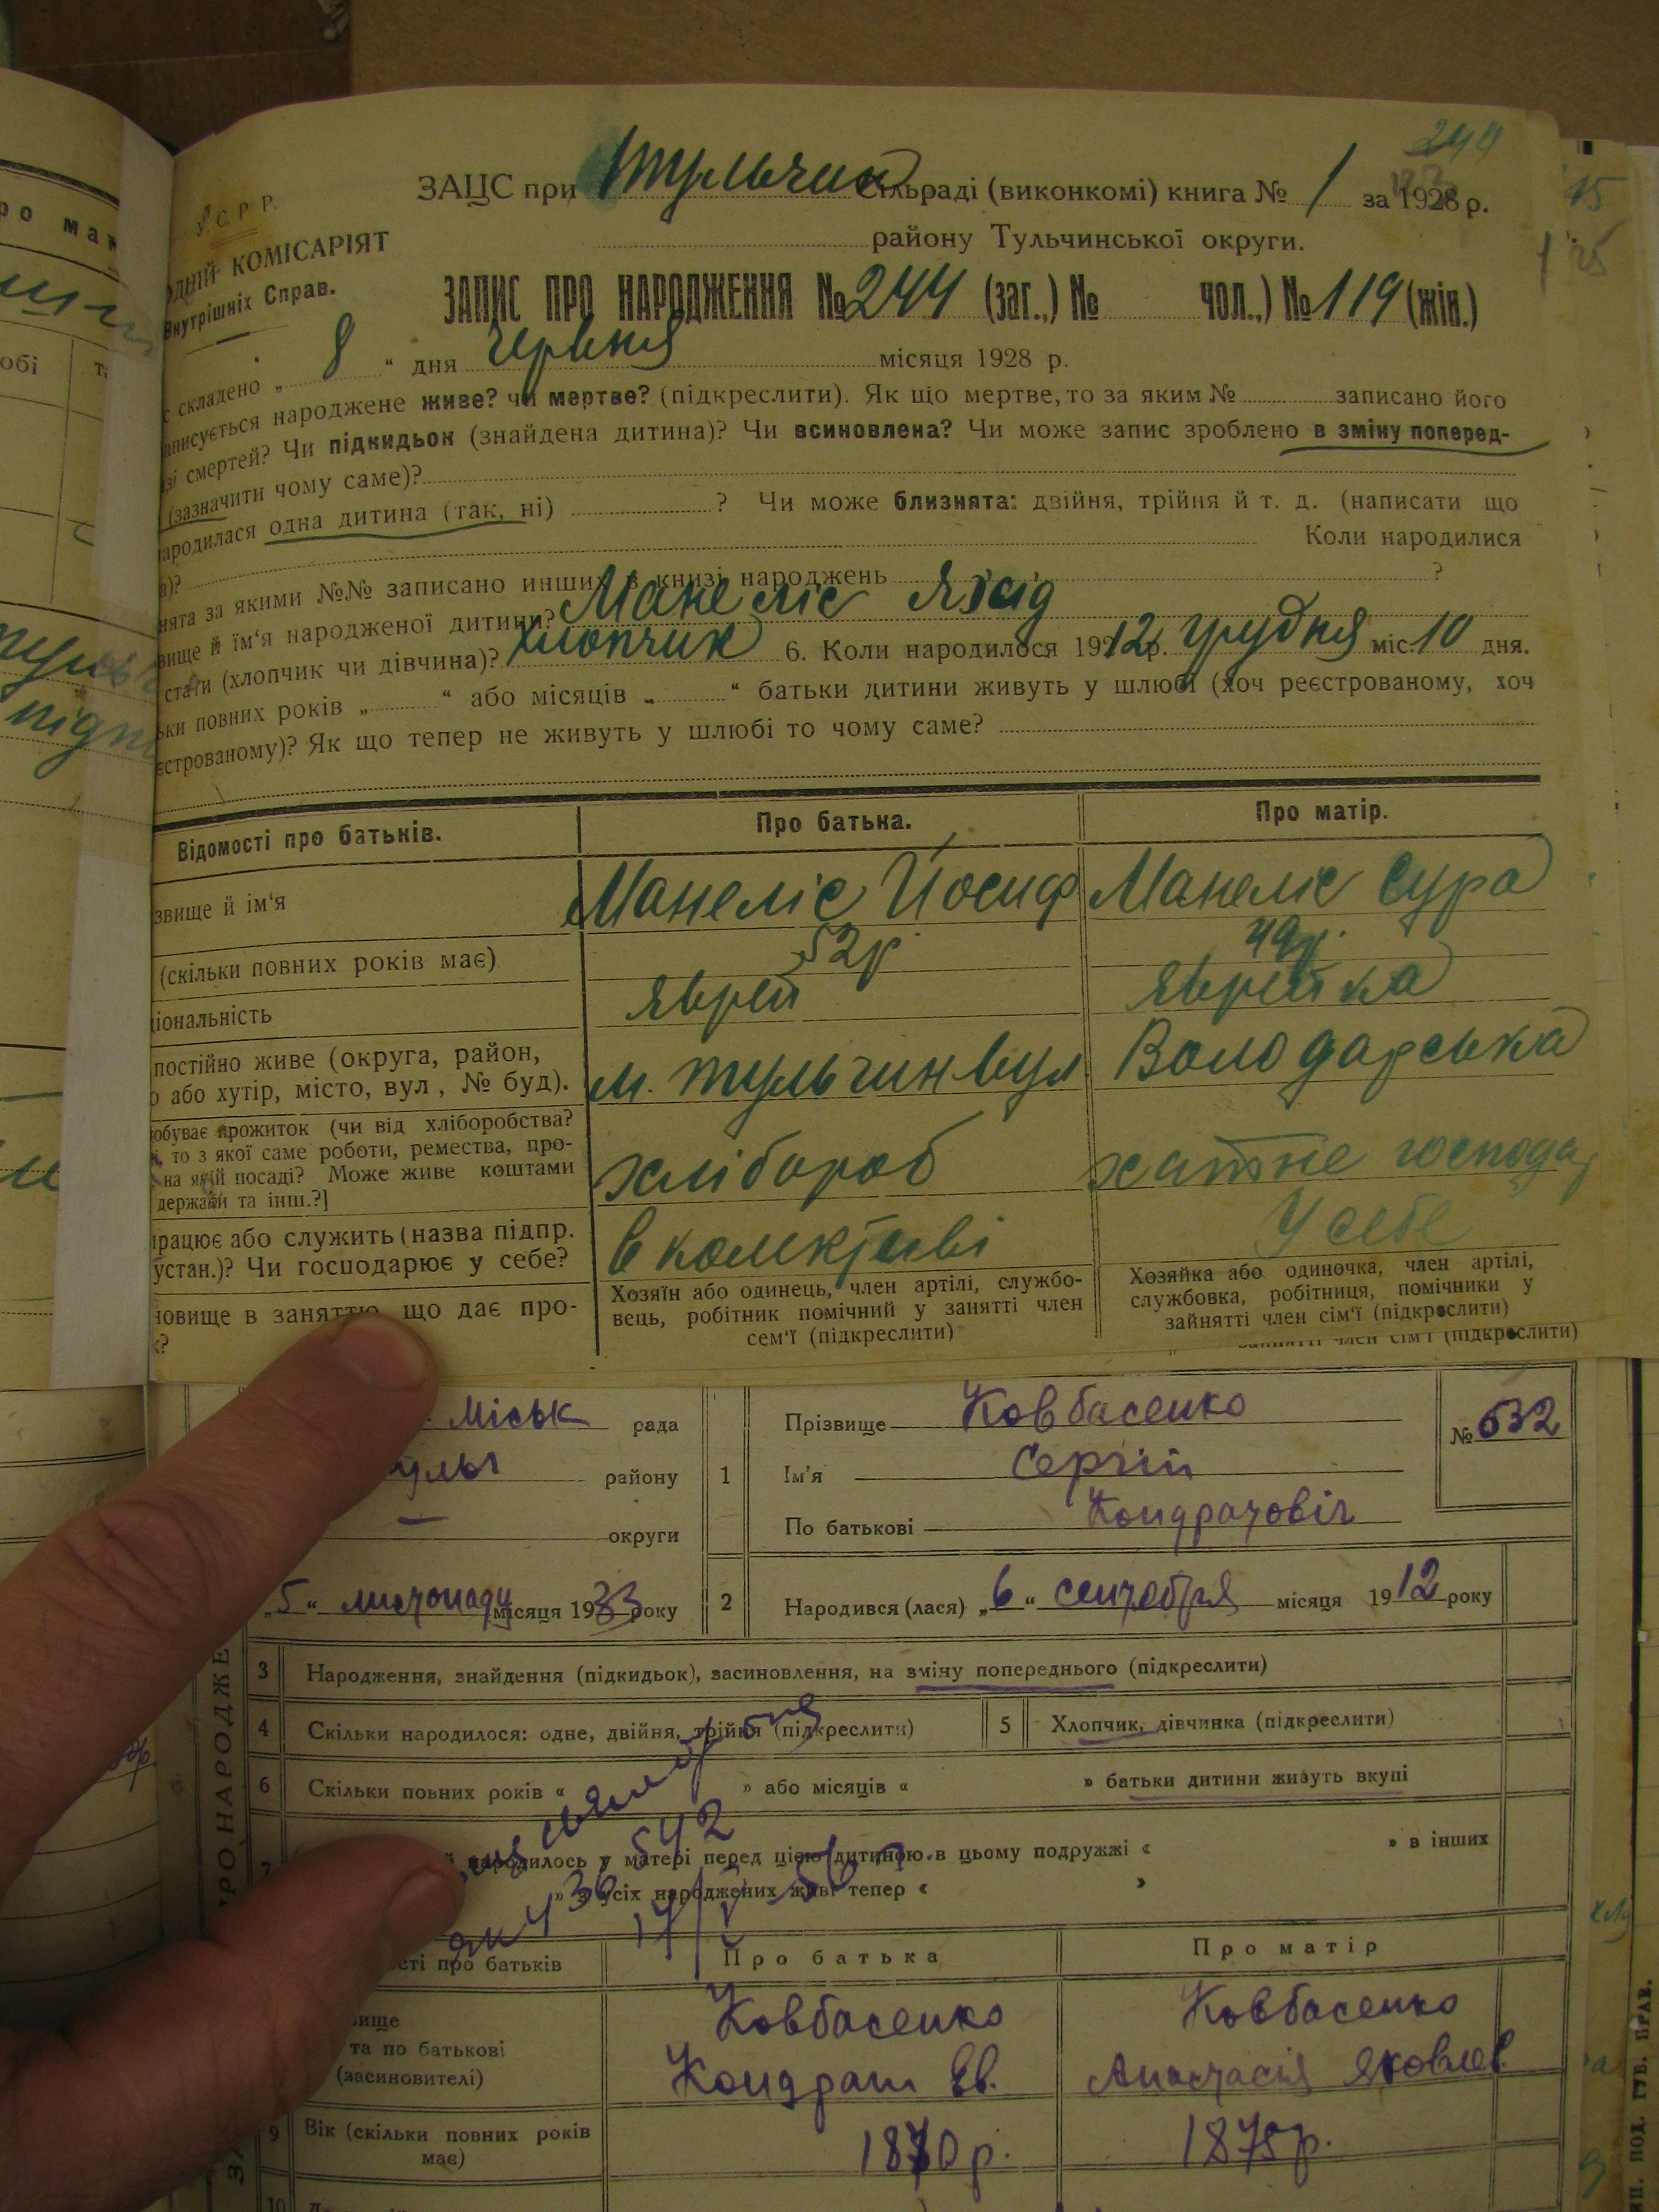 244
У. С. Р. Р.
ОДНІЙ КОМІСАРІЯТ
Внутрішніх Справ.
ЗАЦС при Тульчин Сільраді (виконкомі) книга № 1 за 1928 р.
району Тульчинської округи.
ЗАПИС ПРО НАРОДЖЕННЯ № 244 (заг.,) № чол.,) № 119 (жін.)
с складено „ 8 “ дня червня місяця 1928 р.
аписується народжене живе? чи мертве? (підкреслити). Як що мертве, то за яким № записано його
зі смертей? Чи підкидьок (знайдена дитина)? Чи всиновлена? Чи може запис зроблено в зміну поперед-
(зазначити чому саме)?
ародилася одна дитина (так, ні) ? Чи може близнята: двійня, трійня й т. д. (написати що
а)? Коли народилися
нята за якими №№ записано инших в книзі народжень ?
вище й їм'я народженої дитини? Манеліс
стати (хлопчик чи дівчина)? хлопчик 6. Коли народилося 1912 р. грудня міс. 10 дня.
ьки повних років „ “ або місяців „ “ батьки дитини живуть у шлюбі (хоч реєстрованому, хоч
єстрованому)? Як що тепер не живуть у шлюбі то чому саме?
Відомості про батьків. Про батька. Про матір.
звище й ім'я Манеліс Йосиф Манеліс Сура
(скільки повних років має) 52 р. 49 р.
ціональність яврей яврейка
постійно живе (округа, район,
о або хутір, місто, вул, № буд). м. Тульчин вул Володарська
обуває прожиток (чи від хліборобства?
і, то з якої саме роботи, ремества, про-
на якій посаді? Може живе коштами
держави та інш.?]
хлібороб хатне господар
працює або служить (назва підпр.
устан.)? Чи господарює у себе?
в колективі У себе
новище в заняттю, що дає про-
к?
Хозяїн або одинець, член артілі, службо-
вець, робітник помічний у занятті член
сем'ї (підкреслити)
Хозяйка або одиночка, член артілі,
службовка, робітниця, помічники у
зайнятті член сім'ї (підкреслити)
зайнятті член сім'ї (підкреслити)
міськ рада
ульч району
округи
„5“ листопаду місяця 1933 року
1 Прізвище Ковбасенко
Ім'я Сергій
По батькові Кондратовіч
№ 632
2 Народився (лася) „6“ сентебря місяця 1912 року
3 Народження, знайдення (підкидьок), засиновлення, на зміну попереднього (підкреслити)
4 Скільки народилося: одне, двійня, трійня (підкреслити) 5 Хлопчик, дівчинка (підкреслити)
6 Скільки повних років « » або місяців « » батьки дитини живуть вкупі
7 й народилось у матері перед цією дитиною в цьому подружжі « » в інших
» з усіх народжених живі тепер «
ості про батьків Про батька Про матір
вище
та по батькові
(засиновителі)
Ковбасенко Ковбасенко
Кондрат Єв. Анастасія Яковлев.
9 Вік (скільки повних років
має)
1870 р. 1875 р.
10